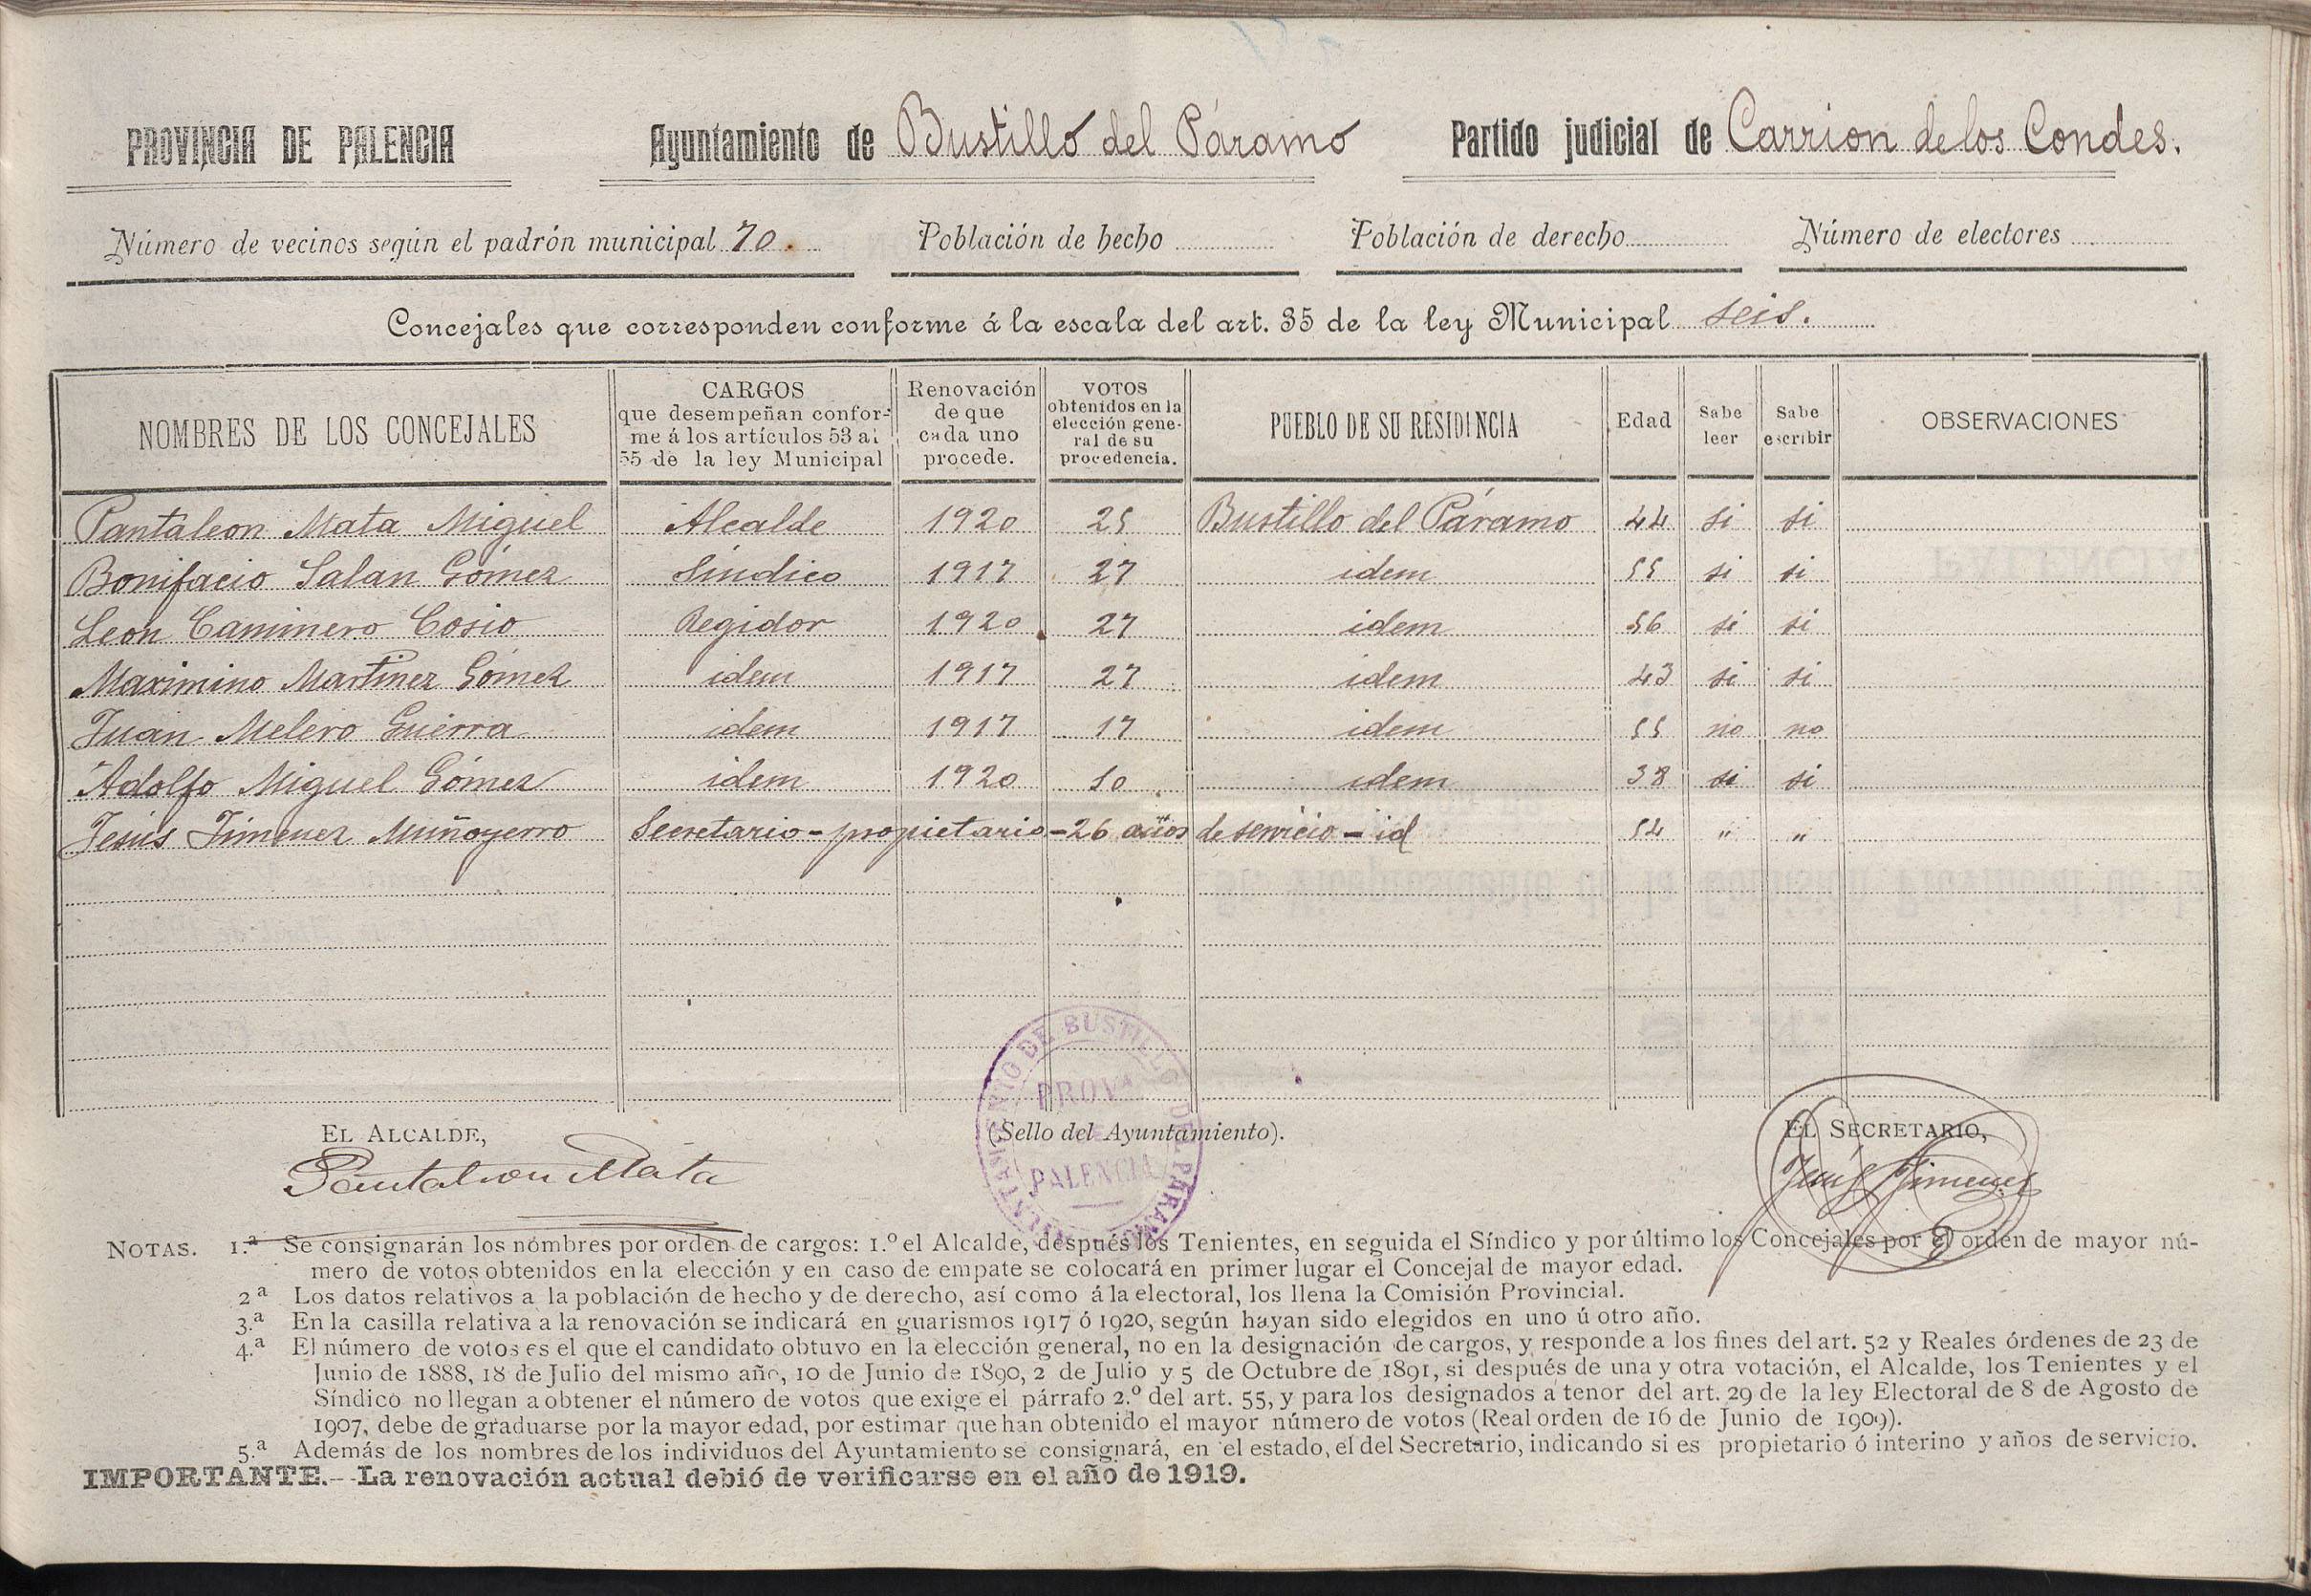 PROVINCIA DE PALENCIA Ayuntamiento de Bustillo del Páramo Partido judicial de Carrion de los Condes.
Número de vecinos según el padrón municipal 70. Población de hecho Población de derecho Número de electores
Concejales que corresponden conforme á la escala del art. 35 de la ley Municipal seis.
NOMBRES DE LOS CONCEJALES
CARGOS
que desempeñan confor-
me á los artículos 53 al
55 de la ley Municipal
Renovación
de que
cada uno
procede.
VOTOS
obtenidos en la
elección gene-
ral de su
procedencia.
PUEBLO DE SU RESIDENCIA
Edad
Sabe
leer
Sabe
escribir
OBSERVACIONES
Pantaleon Mata Miguel Alcalde 1920 25 Bustillo del Páramo 44 si si
Bonifacio Salan Gómez Síndico 1917 27 idem 55 si si
Leon Caminero Cosio Regidor 1920 27 idem 56 si si
Maximino Martinez Gómez idem 1917 27 idem 43 si si
Juan Melero Guerra idem 1917 17 idem 55 no no
Adolfo Miguel Gómez idem 1920 10 idem 38 si si
Jesús Jimenez Muñoyerro Secretario - propietario - 26 años de servicio - id 54 " "
EL ALCALDE,
Pantaleon Mata
AYUNTAMIENTO DE BUSTILLO DEL PÁRAMO
PROVª
PALENCIA
(Sello del Ayuntamiento).
EL SECRETARIO,
Jesús Jimenez
NOTAS. 1.ª Se consignarán los nombres por orden de cargos: 1.º el Alcalde, después los Tenientes, en seguida el Síndico y por último los Concejales por el orden de mayor nú-
mero de votos obtenidos en la elección y en caso de empate se colocará en primer lugar el Concejal de mayor edad.
2ª Los datos relativos a la población de hecho y de derecho, así como á la electoral, los llena la Comisión Provincial.
3.ª En la casilla relativa a la renovación se indicará en guarismos 1917 ó 1920, según hayan sido elegidos en uno ú otro año.
4.ª El número de votos es el que el candidato obtuvo en la elección general, no en la designación de cargos, y responde a los fines del art. 52 y Reales órdenes de 23 de
Junio de 1888, 18 de Julio del mismo año, 10 de Junio de 1890, 2 de Julio y 5 de Octubre de 1891, si después de una y otra votación, el Alcalde, los Tenientes y el
Síndico no llegan a obtener el número de votos que exige el párrafo 2.º del art. 55, y para los designados a tenor del art. 29 de la ley Electoral de 8 de Agosto de
1907, debe de graduarse por la mayor edad, por estimar que han obtenido el mayor número de votos (Real orden de 16 de Junio de 1909).
5.ª Además de los nombres de los individuos del Ayuntamiento se consignará, en el estado, el del Secretario, indicando si es propietario ó interino y años de servicio.
IMPORTANTE.—La renovación actual debió de verificarse en el año de 1919.